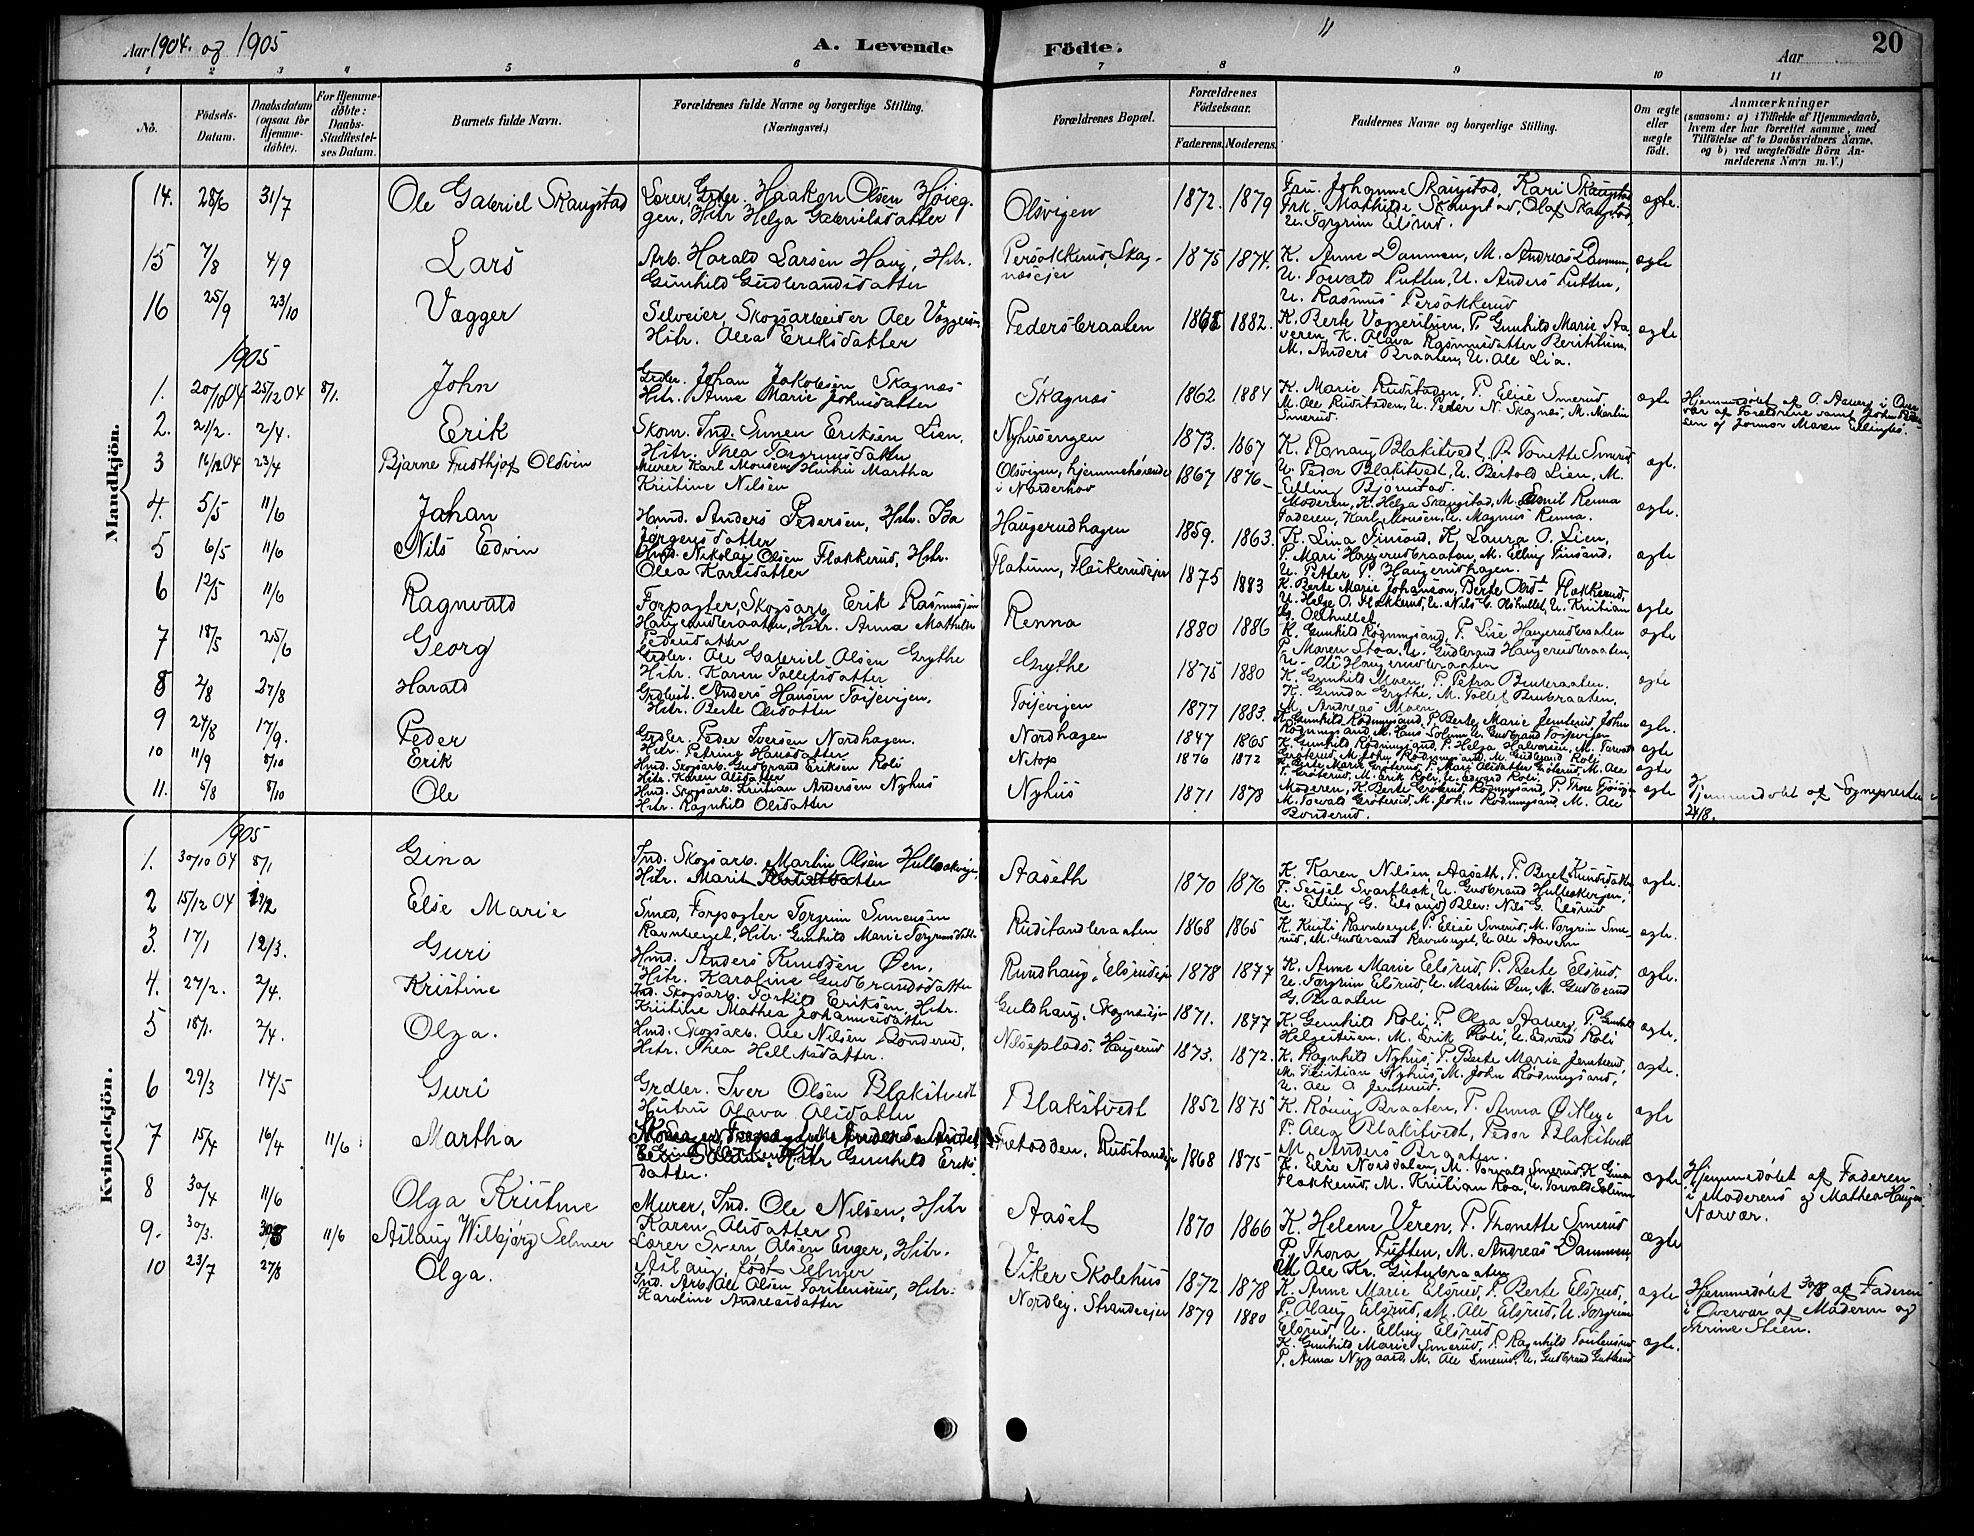 Aar 1904. og 1905
A. Levende Födte.
Aar
20
1 2 3 4 5 6 7 8 9 10 11
No.
Födsels-Datum.
Daabsdatum (ogsaa for Hjemme-döbte).
For Hjemme-döbte: Daabs-Stadfæstel-ses Datum.
Barnets fulde Navn.
Forældrenes fulde Navne og borgerlige Stilling. (Næringsvei.)
Forældrenes Bopæl.
Forældrenes Födselsaar.
Faderens. Moderens.
Faddernes Navne og borgerlige Stilling.
Om ægte eller uægte født.
Anmærkninger
(saasom: a) i Tilfælde af Hjemmedaab,
hvem der har forrettet samme, med
Tilföielse af to Daabsvidners Navne,
og b) ved uægtefödte Börn An-
melderens Navn m. V.)
Mandkjön.
14. 28/6 31/7 Ole Gabriel Skaugstad Lærer, Grdbr. Haakon Olsen Höieg-
gen, Hstr Helga Gabrielsdatter Olsvigen 1872. 1879 Fru. Johanne Skaugstad, Kari Skaugstad
Frk. Mathilde Skaugstad, Olaf Skaugstad,
U. Torgrim Elsrud. ægte.
15 7/8 4/9 Lars Arb. Harald Larsen Haug, Hstr.
Gunhild Gudbrandsdatter Persökkerud, Skag-
næsejer 1875 1874. K. Anne Dammen, M. Andreas Dammen,
U. Torvald Tuften, U. Anders Tuften,
U. Rasmus Persökkerud ægte
16 25/9 23/10 Vegger Selveier, Skogsarbeider Ole Veggersen
Hstr. Olea Eriksdatter Pedersbraaten 1868 1882. K. Berte Veggerstuen, P. Gunhild Marie Aa-
veren, K. Olava Rasmusdatter
M. Anders Braaten, U. Ole Lia. ægte
1905
1. 20/10 04 25/12 04 8/1. John Grdbr. Johan Jakobsen Skagnæs
Hstr. Anne Marie Johnsdatter Skagnæs 1862 1884 K. Marie Rudstaden, P. Elise Smerud,
M. Ole Rudstaden, U. Peder N. Skagnæs, M. Martin
Smerud. ægte Hjemmedøbt af O. Aaverg i Over-
vær af Forældrene samt John
sen og Jormor Maren Ellingsb.
2. 21/2. 2/4. Erik Skom. Ind. Simen Eriksen Lien,
Hstr. Thea Torgrimsdatter Nyhusengen 1873. 1867 K. Rønaug Blakstvedt, P. Tonette Smerud
U. Peder Blakstvedt, U. Bertold Lien, M.
Elling Bjönstad. ægt.
3 16/12 04 23/4 Bjarne Fridthjof Oldvin Murer Karl Monsen, Hustru Martha
Kristine Nilsen Olsvigen, hjemmehørende
i Norderhov 1867 1876- Moderen, K. Helga Skaugstad, M. Emil Renna
Faderen, Karl Monsen, U. Magnus Renna. ægte.
4. 5/5 11/6 Johan Hmd. Anders Pedersen, Hstr. Ida
Jørgensdatter Haugerudhagen 1859. 1863. K. Lina Finsand, K. Laura O. Lien,
P. Mari Haugerudbraaten, M. Elling Finsand,
U. Petter P. Haugerudhagen. ægte
5 6/5 11/6 Nils Edvin Hmd. Nikolai Olsen Flakkerud, Hstr.
Olea Karlsdatter Flatum, Flakerudejer 1875 1883 K. Berte Marie Johanson, Berte Olsd. Flakkerud,
U. Helge O. Flakkerud, U. Nils C. Olshullet, U. Kristian
G. Olshullet. ægte
6 12/5 11/6 Ragnvald Forpagter, Skogsarb. Erik Rasmussen
Haugerudbraaten, Hstr. Anna Mathilde
Pedersdatter Renna 1880 1886 K. Gunhild Rødningsand, P. Lise Haugerudbraaten
P. Maren Staa, U. Gudbrand Haugerudbraaten,
U. Ole Haugerudbraaten ægte
7 18/5 25/6 Georg Grdbr. Ole Gabriel Olsen Grythe
Hstr. Karen Tollefsdatter Grythe 1875 1880 K. Gunhild Moen, P. Petra Bruteraaten.
K. Gunda Grythe, M. Tollef Bruteraaten,
M. Andreas Moen. ægte
8 2/8 27/8 Harald Grdbest. Anders Hansen Toisevigen,
Hstr. Berte Olsdatter Toisevigen 1877 1883. K. Gunhild Rødningsand, P. Berte Marie Jensterud, John
Rødningsand, M. Hans Solum, U. Gudbrand Toisevigen ægte.
9 24/8 17/9. Peder Grdbr. Peder Iversen Nordhagen.
Hstr. Petrine Hansdatter Nordhagen 1847 1865 K. Gunhild Rødningsand, P. Helga Halvorsen, M. Torvald
Grøterud, M. John Rødningsand, M. Gudbrand Roli ægte
10 11/9 8/10 Erik Hmd. Skogsarb. Gudbrand Eriksen Roli
Hstr. Karen Olsdatter Nstop 1876 1872 K. Berte Marie Grøterud, P. Mari Olsdatter Grøterud, M. Ole
T. Grøterud, M. Erik Roli, U. Edvard Roli. ægte
11. 5/8 8/10 Ole Hmd. Skogsarb. Kristian Andersen Nyhus
Hstr. Ragnhild Olsdatter Nyhus 1871 1878 Moderen, K. Berte Grøterud, Rødningsand, P. Thore
M. Torvald Grøterud, M. John Rødningsand, M. Ole
Bonderud. ægte Hjemmedøbt af Sognepresten
24/8.
Kvindekjön.
1905
1. 30/10 04 8/1 Gina Ind. Skogsarb. Martin Olsen Hulbakvigen,
Hstr. Marit Aaseth 1870 1876 K. Karen Nilsen Aaseth, P. Beret Knudsdatter
P. Seigel Svartbek, U. Gudbrand Hulbakvigen,
U. Elling G. Elsrud) Blev: Nils G. Elsrud ægte.
2 15/12 04 Else Marie Smed, Forpagter Torgrim Simensen
Ravnberget, Hstr. Gunhild Marie Torgrimsdatt. Rudstandbraaten 1868 1865 K. Kristi Ravnberget, P. Elise Smerud, M. Torgrim Sme-
rud, M. Gudbrand Ravnberget, U. Ole Aaveren ægte.
3. 17/1 12/3. Guri Hmd. Anders Knudsen Øen,
Hstr. Karoline Gudbrandsdatter Rundhaug, Elsrudejer 1878 1877 K. Anne Marie Elsrud, P. Berte Elsrud,
U. Torgrim Elsrud, U. Martin Øen, M. Gudbrand
G. Braaten ægte.
4. 27/2. 2/4. Kristine Ind. Skogsarb. Torkil Eriksen, Hstr.
Kristine Mathea Johannesdatter Guldhaug, Skagnæsejer 1871. 1877 K. Gunhild Roli, P. Olga Aaverg, P. Gunhild
Helgestuen. M. Erik Roli, U. Edvard Roli ægte,
5 18/1. 2/4. Olga. Hmd. Skogsarb. Ole Nilsen Bonderud,
Hstr. Thea Helleksdatter. Nilseplads. Haugerud 1873. 1872. K. Ragnhild Nyhus, P. Berte Marie Jensterud,
M. Kristian Nyhus, M. John Rødningsand,
U. Ole O. Jensterud. ægte.
6 29/3 14/5 Guri Grdbr. Iver Olsen Blakstvedt
Hustru Olava Olsdatter Blakstvedt 1852 1875 K. Rönug Braaten, P. Anna Østbye
P. Olea Blakstvedt, Peder Blakstvedt
M. Anders Braaten. ægte
7 15/4 16/4 11/6 Martha
Hstr Gunhild Eriks-
datter. Tretodden, Rudstandejer 1868 1875 K. Elise Norddalen, M. Torvald Smerud, K. Gina
Flakkerud, M. Kristian Roa, U. Torvald Solum ægte Hjemmedøbt af Faderen
i Moderens og Mathea Haugen
Nærvær.
8 30/4 11/6 Olga Kristine Murer, Ind. Ole Nilsen, Hstr
Karen Olsdatter Aaset 1870 1866 K. Helene Veren, P. Thonette Smerud
P. Thora Tuften, M. Andreas Dammen,
M. Ole Kr. Gutubraaten ægte
9. 30/3. 30/3 11/6 Aslaug Wilbjörg Selmer Lærer Sven Olsen Enger, Hstr.
Aslaug født Selmer Viker Skolehus 1872 1878 K. Anne Marie Elsrud, P. Berte Elsrud,
P. Olaug Elsrud, M. Ole Elsrud, U. Torgrim
Elsrud, U. Elling Elsrud ægte Hjemmedøbt 30/3 af Faderen
i Overvær af Moderen og
Trine Steen.
10 23/7 27/8 Olga. Ind. Arb. Ole Olsen Torstensrud, Hstr.
Karoline Andreasdatter Nordby, Strandeejer 1879 1880 K. Gunhild Marie Smerud, P. Ragnhild Torstensrud
P. Anna Nygaard, M. Ole Smerud, U. Gudbrand Guttersrud ægte.